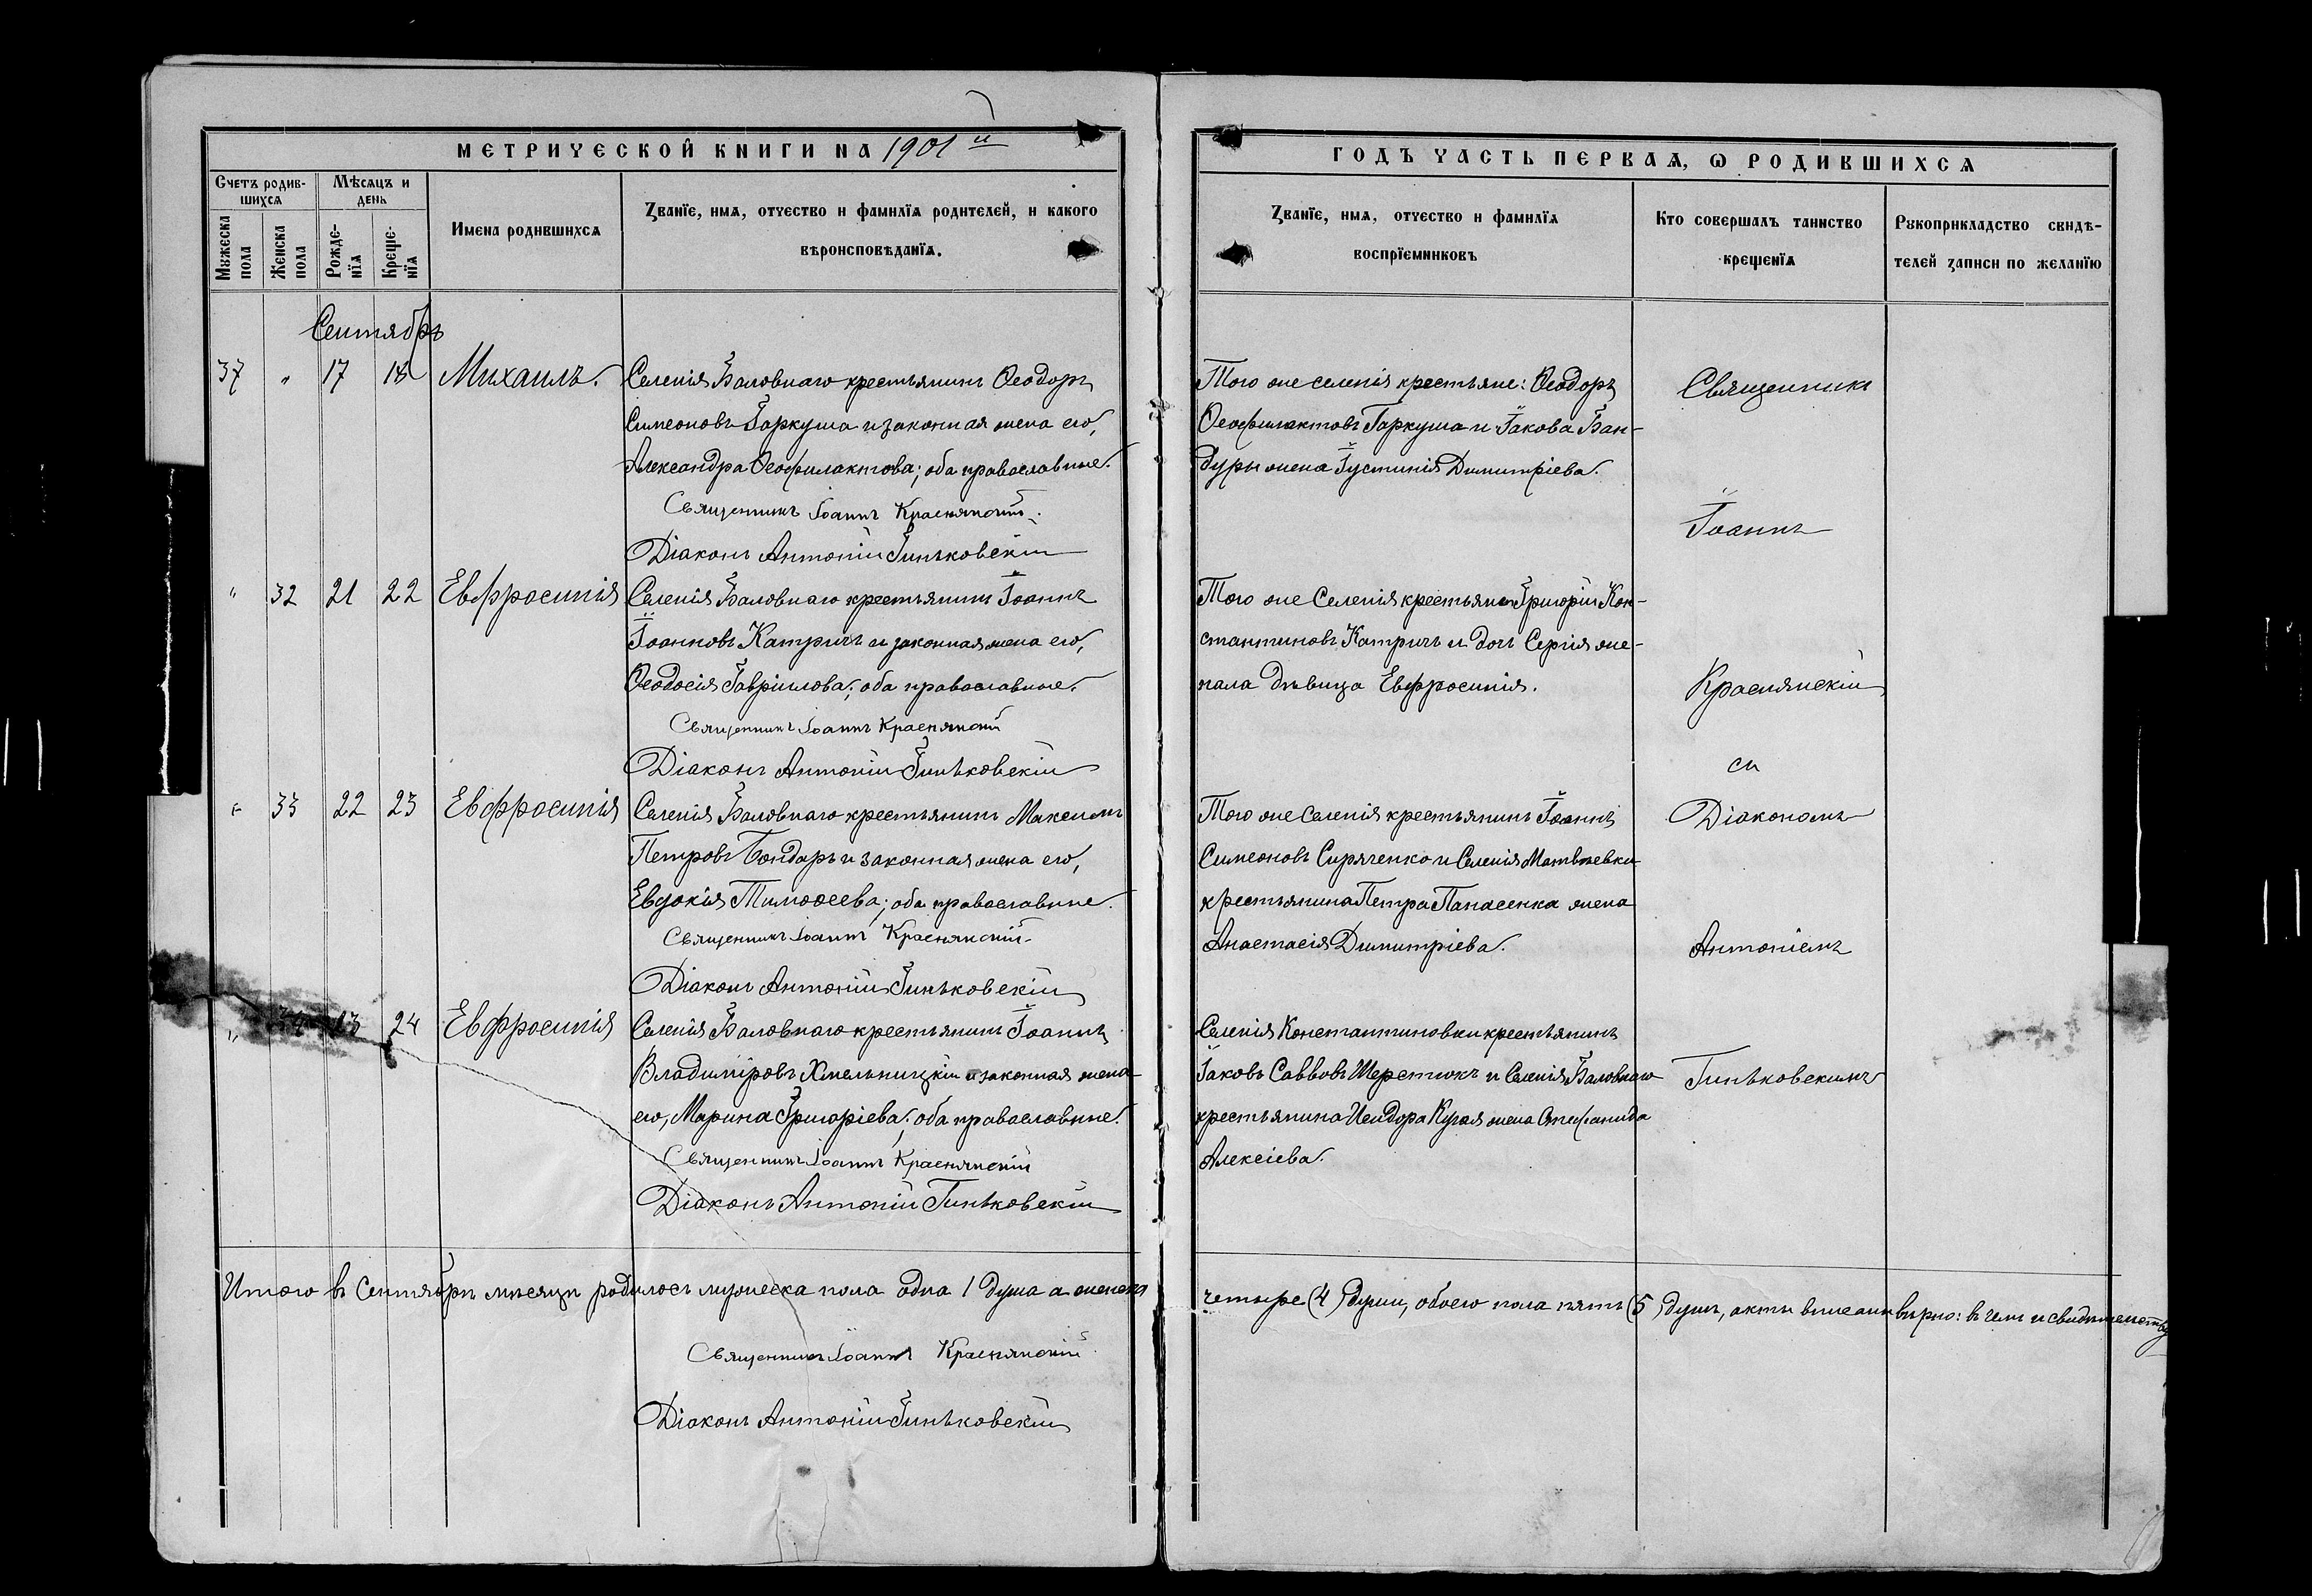 МЕТРИЧЕСКОЙ КНИГИ НА 1901й
ГОДЪ ЧАСТЬ ПЕРВАѦ, Ѡ РОДИВШИХСѦ
Счетъ родив-
шихсѧ
Мѣсѧцъ и
день
Мужеска
пола
Женска
пола
Рожде-
нїѧ
Креще-
нїѧ
Имена родившихсѧ
Званїе, имѧ, отчество и фамилїѧ родителей, и какого
вѣроисповѣданїѧ.
Званїе, имѧ, отчество и фамилїѧ
воспрїемниковъ
Кто совершалъ таинство
крещенїѧ
Рукоприкладство свидѣ-
телей записи по желанїю
Сентябрь
37 " 17 18 Михаилъ.
Селенія Баловнаго крестьянинъ Ѳеодоръ
Симеоновъ Гаркуша и законная жена его,
Александра Ѳеофилактова; оба православные.
Священникъ Іоаннъ Краснянскій.
Діаконъ Антоній Гиньковскій
Того же селенія крестьяне: Ѳеодоръ
Ѳеофилактовъ Гаркуша и Іакова Бан-
дуры жена Іустинія Димитріева.
" 32 21 22 Евфросинія
Селенія Баловнаго крестьянинъ Іоаннъ
Іоанновъ Катричъ и законная жена его,
Ѳеодосія Гавріилова; оба православные.
Священникъ Іоаннъ Краснянскій
Діаконъ Антоній Гиньковскій
Того же Селенія крестьяне Григорій Кон-
стантиновъ Катричъ и дочь Сергія
дѣвица Евфросинія.
" 33 22 23 Евфросинія
Селенія Баловнаго крестьянинъ Максимъ
Петровъ Бондарь и законная жена его,
Евдокія Тимоѳеева; оба православные.
Священникъ Іоаннъ Краснянскій
Діаконъ Антоній Гиньковскій
Того же Селенія крестьянинъ Іоаннъ
Симеоновъ Сиряченко и Селенія Матвѣевки
крестьянина Петра Панасенка жена
Анастасія Димитріева.
" 34 23 24 Евфросинія
Селенія Баловнаго крестьянинъ Іоаннъ
Владиміровъ Хмельницкій и законная жена
его, Марина Григоріева; оба православные.
Священникъ Іоаннъ Краснянскій
Діаконъ Антоній Гиньковскій
Селенія Константиновки крестьянинъ
Іаковъ Саввовъ Шерстюкъ и Селенія Баловнаго
крестьянина Исидора жена Стефанида
Алексіева.
Священникъ
Іоаннъ
Краснянскій
съ
Діакономъ
Антоніемъ
Гиньковскимъ
Итого въ Сентябрѣ мѣсяцѣ родилось мужеска пола одна 1 душа а женска
четыре (4) души, обоего пола пять (5) душъ, акты вписаны вѣрно: въ чемъ и свидѣтельству
Священникъ Іоаннъ Краснянскій
Діаконъ Антоній Гиньковскій